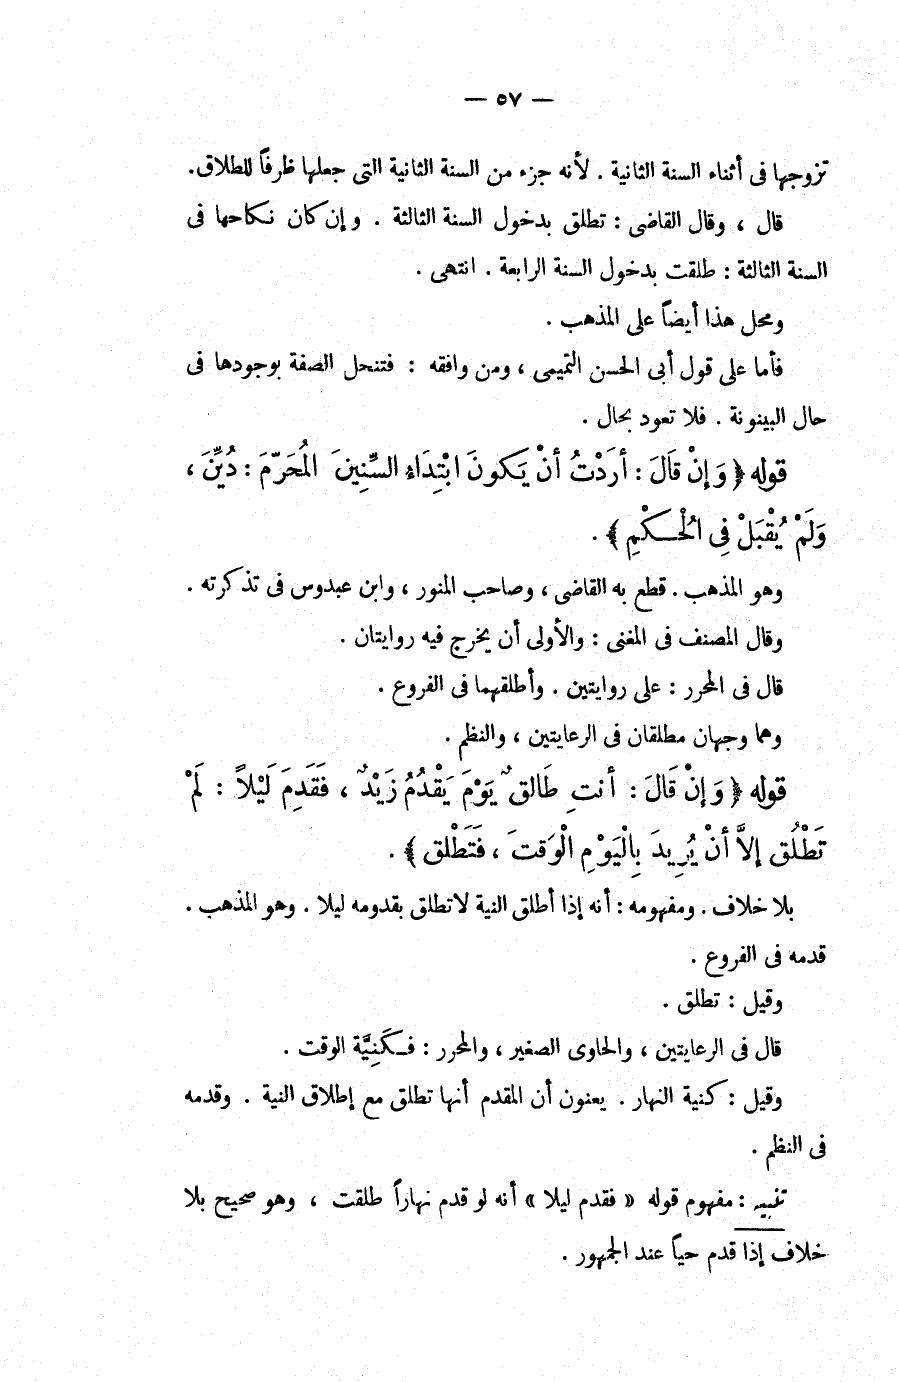 — ٥٧ —
تزوجها فى أثناء السنة الثانية . لأنه جزء من السنة الثانية التى جعلها ظرفاً للطلاق.
قال ، وقال القاضى : تطلق بدخول السنة الثالثة . وإن كان نكاحها فى
السنة الثالثة : طلقت بدخول السنة الرابعة . انتهى .
ومحل هذا أيضاً على المذهب .
فأما على قول أبى الحسن التميمى ، ومن وافقه : فتنحل الصفة بوجودها فى
حال البينونة . فلا تعود بحال .
قوله ﴿ وَإِنْ قَالَ : أَرَدْتُ أَنْ يَكونَ ابْتِدَاءِ السِّنِينَ المُحَرّمَ : دُيِّنَ ،
وَلَمْ يُقْبَلْ فِى الْحُـكْمِ ﴾ .
وهو المذهب . قطع به القاضى ، وصاحب المنور ، وابن عبدوس فى تذكرته .
وقال المصنف فى المغنى : والأولى أن يخرج فيه روايتان .
قال فى المحرر : على روايتين . وأطلقهما فى الفروع .
وهما وجهان مطلقان فى الرعايتين ، والنظم .
قوله ﴿ وَإِنْ قَالَ : أنتِ طَالقٌ يَوْمَ يَقْدُمُ زَيْدٌ ، فَقَدِمَ لَيْلاً : لَمْ
تَطْلُق إلاَّ أنْ يُرِيدَ بِالْيَوْمِ الْوَقتَ ، فَتَطْلق ﴾ .
بلا خلاف . ومفهومه : أنه إذا أطلق النية لاتطلق بقدومه ليلا . وهو المذهب .
قدمه فى الفروع .
وقيل : تطلق .
قال فى الرعايتين ، والحاوى الصغير ، والمحرر : فـكَنِيَّة الوقت .
وقيل : كنية النهار . يعنون أن المقدم أنها تطلق مع إطلاق النية . وقدمه
فى النظم .
تنبيه : مفهوم قوله « فقدم ليلا » أنه لو قدم نهاراً طلقت ، وهو صحيح بلا
خلاف إذا قدم حياً عند الجمهور .